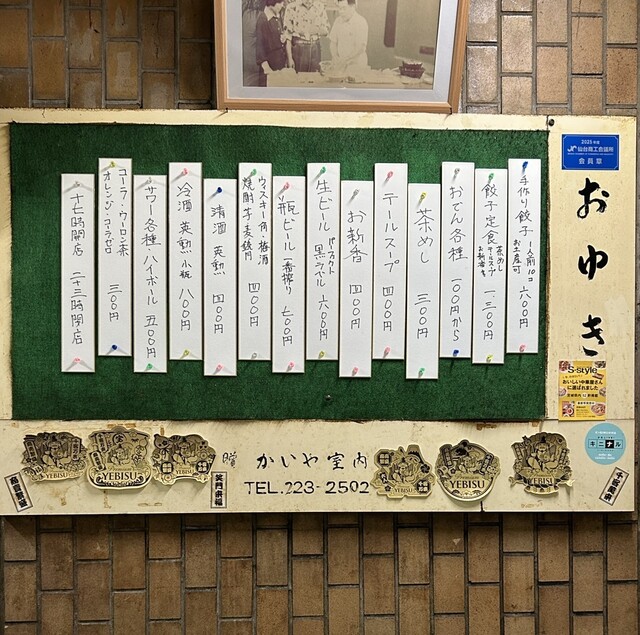 手作り餃子 一人前10コ お土産可 六〇〇円
餃子定食 茶めし テールスープ お新香 一、三〇〇円
おでん各種 一〇〇円から
茶めし 三〇〇円
テールスープ 四〇〇円
お新香 四〇〇円
生ビール パーフェクト 黒ラベル 六〇〇円
瓶ビール 一番搾り 七〇〇円
ウィスキー角・梅酒
焼酎 芋・麦・緑 四〇〇円
清酒 英勲 四〇〇円
冷酒 英勲 小瓶 八〇〇円
サワー各種・ハイボール 五〇〇円
コーラ・ウーロン茶
オレンジ・コーラゼロ 三〇〇円
十七時開店 二十三時閉店
2025年度
仙台商工会議所
会員章
おゆき
S-style
おいしい中華屋さん
に選ばれました
キニナル
贈 かいや室内
TEL.223-2502
YEBISU
YEBISU
YEBISU
YEBISU
YEBISU
YEBISU
商売繁盛
笑門来福
千客萬来